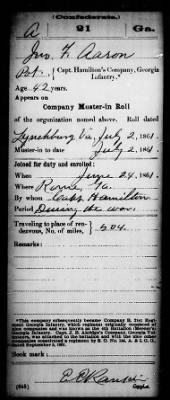 (Confederate.)
A 21 Ga.
Jno. F. Aaron
Pvt., Capt. Hamilton's Company, Georgia
Infantry.*
Age 42 years.
Appears on
Company Muster-in Roll
of the organization named above. Roll dated
Lynchburg Va, July 2, 1861.
Muster-in to date July 2, 1861.
Joined for duty and enrolled:
When June 24, 1861.
Where Rome, Ga.
By whom Capt. Hamilton
Period During the war.
Traveling to place of ren-
dezvous, No. of miles, 504.
Remarks:
*This company subsequently became Company B, 21st Regi-
ment Georgia Infantry, which regiment originally consisted of
nine companies and was known as the 4th Battalion
Book mark:
(645) Copyist.